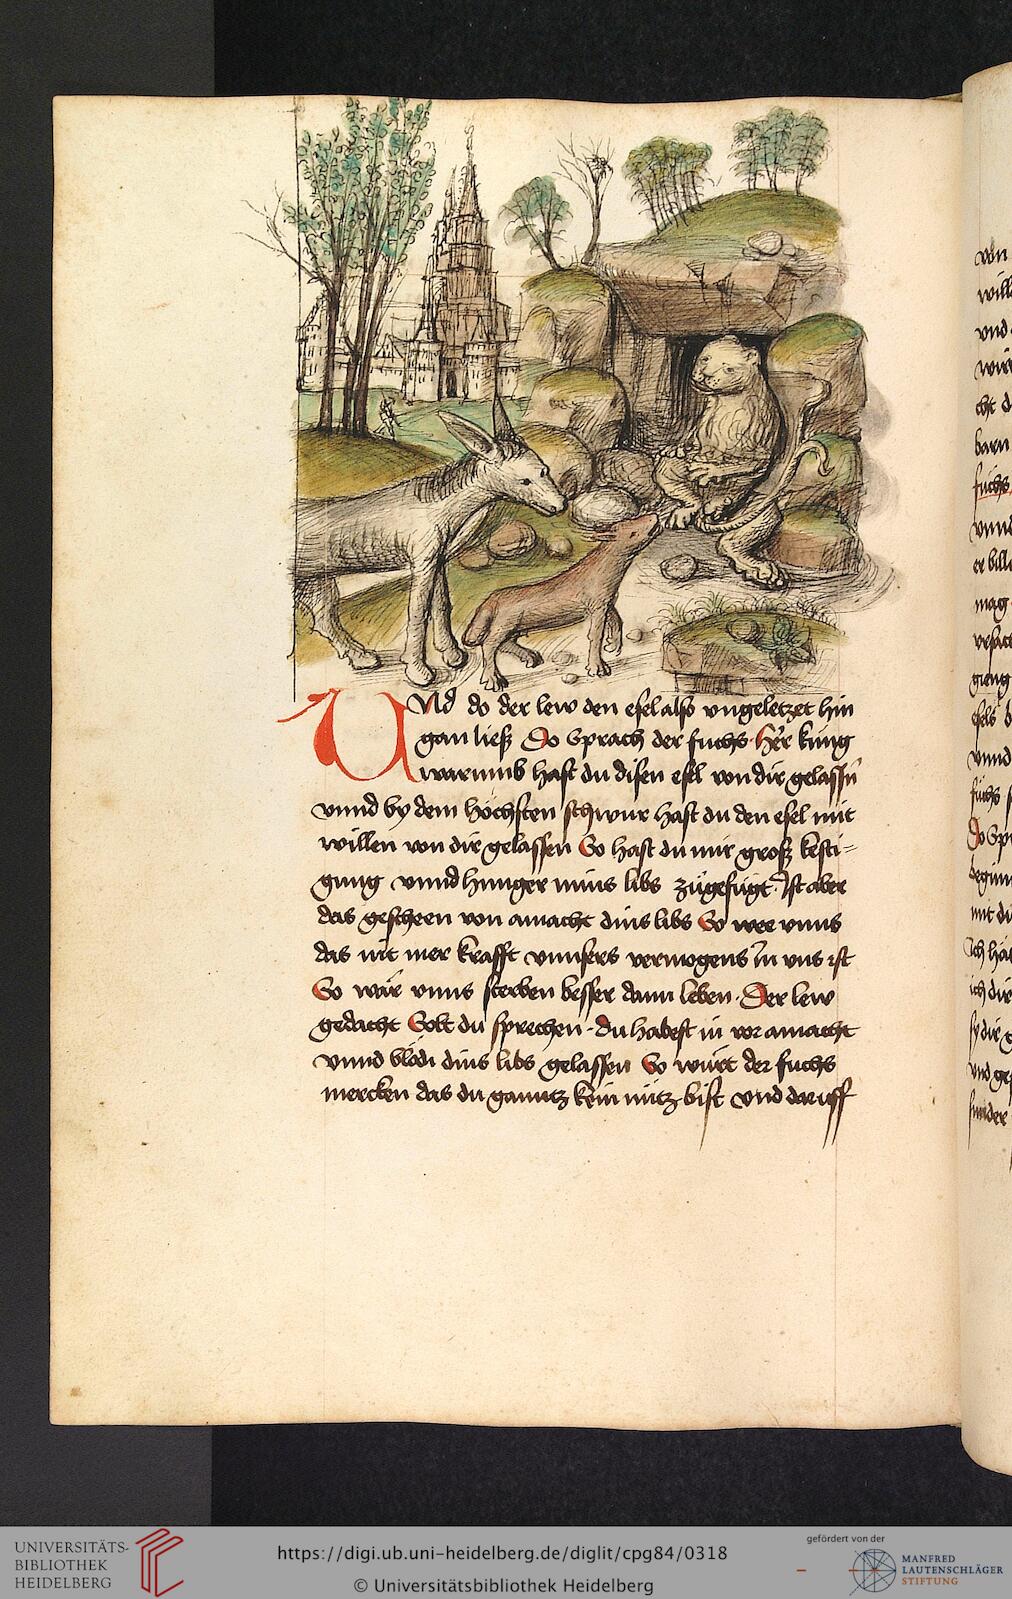 Und do der lew den esel also ungeletzet hin
gan ließ Do sprach der fuchs her kung
warumb hast du disen esel von dir gelassen
vnnd by dem höchsten schwur hast du den esel mit
willen von dir gelassen So hast du mir groß kesti-
gung vnnd hunger mins libs zůgefügt. Ist aber
das gescheen von amacht dins libs So wee vnns
das nit mer krafft vnnsers vermogens in vns ist
So wär vnns sterben besser dann leben. Der lew
gedacht Solt du sprechen. du habest in vor amacht
vnnd blödi dins libs gelassen So würt der fuchs
mercken das du ganntz kein nütz bist vnd daruff
von
will
vnd
barn
fuchs
vnnd
er bill
mag
vrsach
gieng
esels
vnnd
fuchs
Do spr
beginn
mit du
Ich hät
ich dir
sy dir
vnd ge
sunder
UNIVERSITÄTS-
BIBLIOTHEK
HEIDELBERG
https://digi.ub.uni-heidelberg.de/diglit/cpg84/0318
© Universitätsbibliothek Heidelberg
gefördert von der
MANFRED
LAUTENSCHLÄGER
STIFTUNG